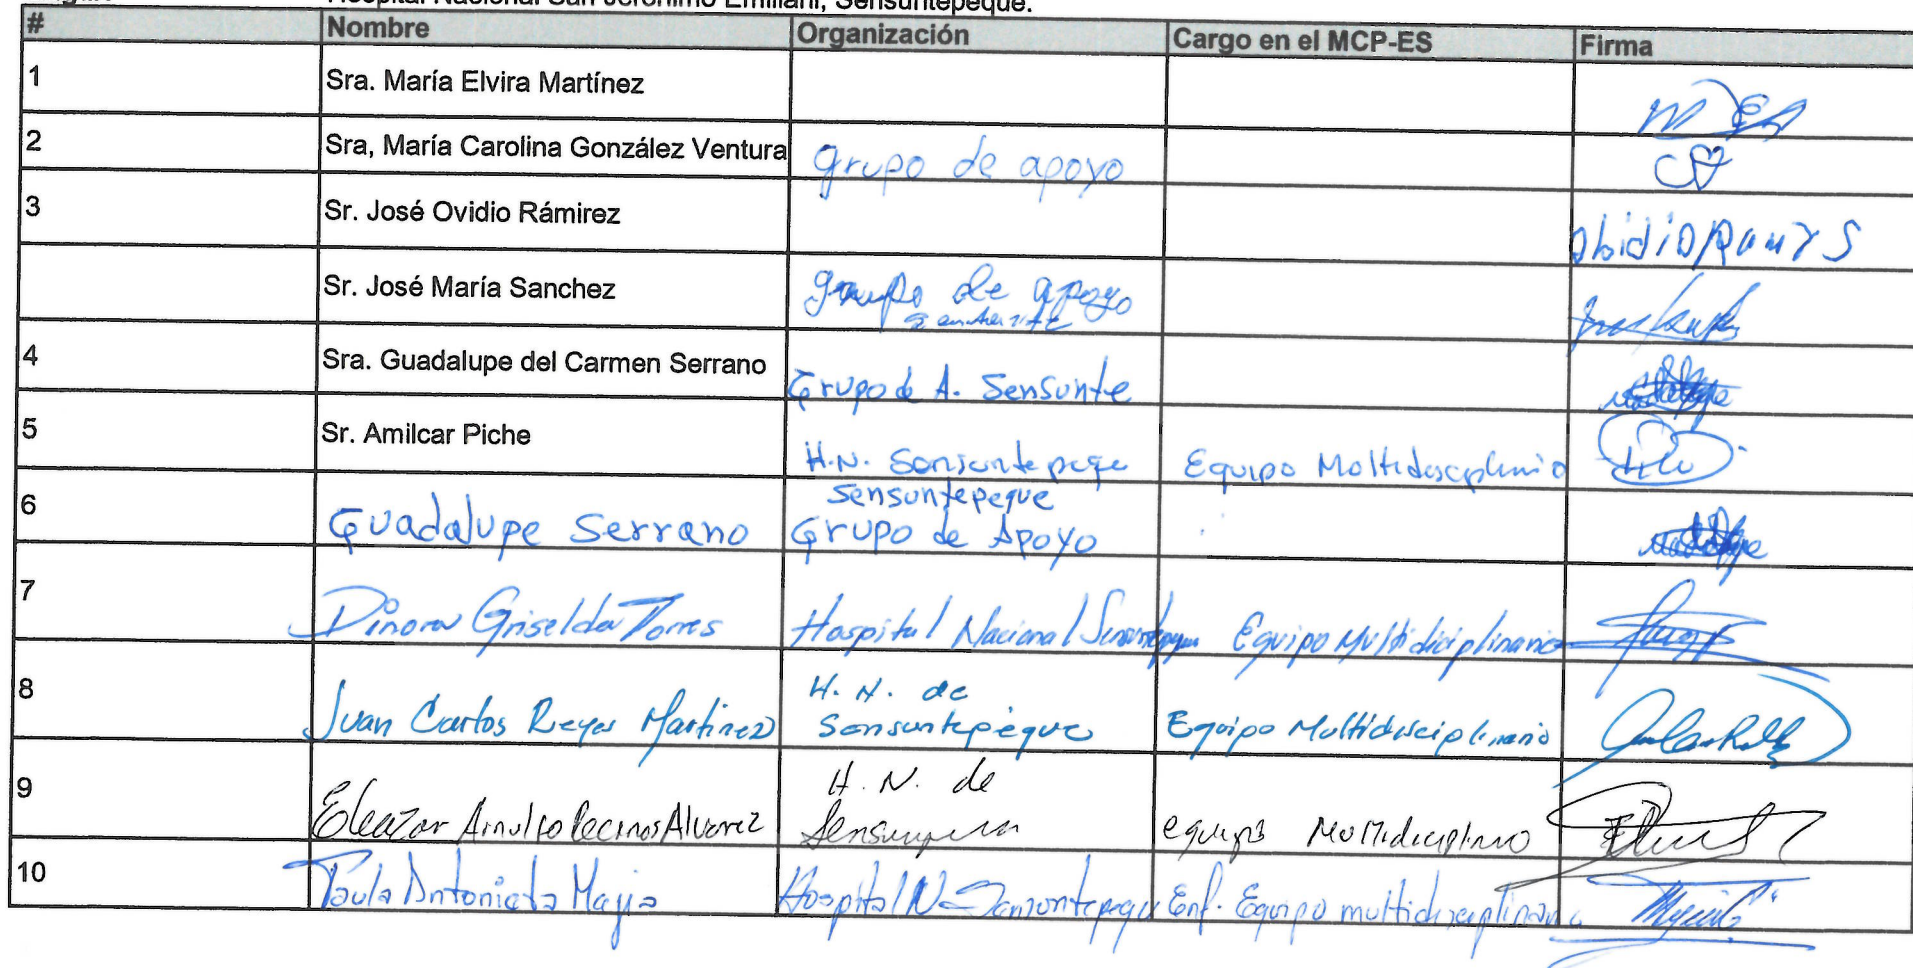 Hospital Nacional San Jerónimo Emiliani, Sensuntepeque.
# Nombre Organización Cargo en el MCP-ES Firma
1 Sra. María Elvira Martínez
2 Sra, María Carolina González Ventura grupo de apoyo
3 Sr. José Ovidio Rámirez
Sr. José María Sanchez grupo de apoyo
4 Sra. Guadalupe del Carmen Serrano Grupo de A. Sensunte
5 Sr. Amilcar Piche H.N. Equipo
6 Guadalupe Serrano Sensuntepeque
Grupo de Apoyo
7 Dinora Griselda Torres Hospital Nacional Equipo Multidiciplinario
8 Juan Carlos Reyes Martinez H. N. de
Sensuntepeque Equipo Multidisciplinario
9 Eleazar Arnulfo Alvarez H. N. de
equipo
10 Paula Antonieta Mejia Hospital N. Sensuntepeque Enf. Equipo multidisciplinario